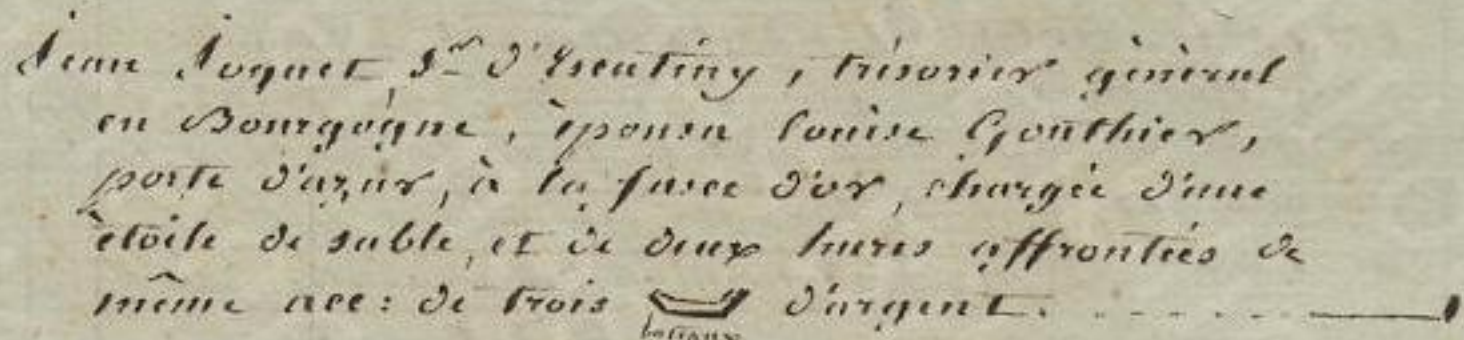 Jean Joquet, Sr d'Escutiny, trésorier général
en Bourgogne, épousa Louise Gonthier,
porte d'azur, à la fasce d'or, chargée d'une
étoile de sable, et de deux hures affrontées de
même acc: de trois d'argent.
bateaux